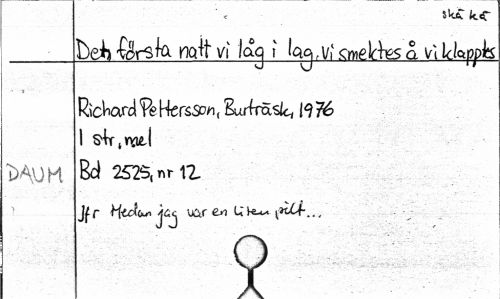 skä kä
Den första natt vi låg i lag, vi smektes å vi klapptes
Richard Pettersson, Burträsk, 1976
1 str, mel
DAUM Bd 2525, nr 12
Jfr Medan jag var en liten pilt...